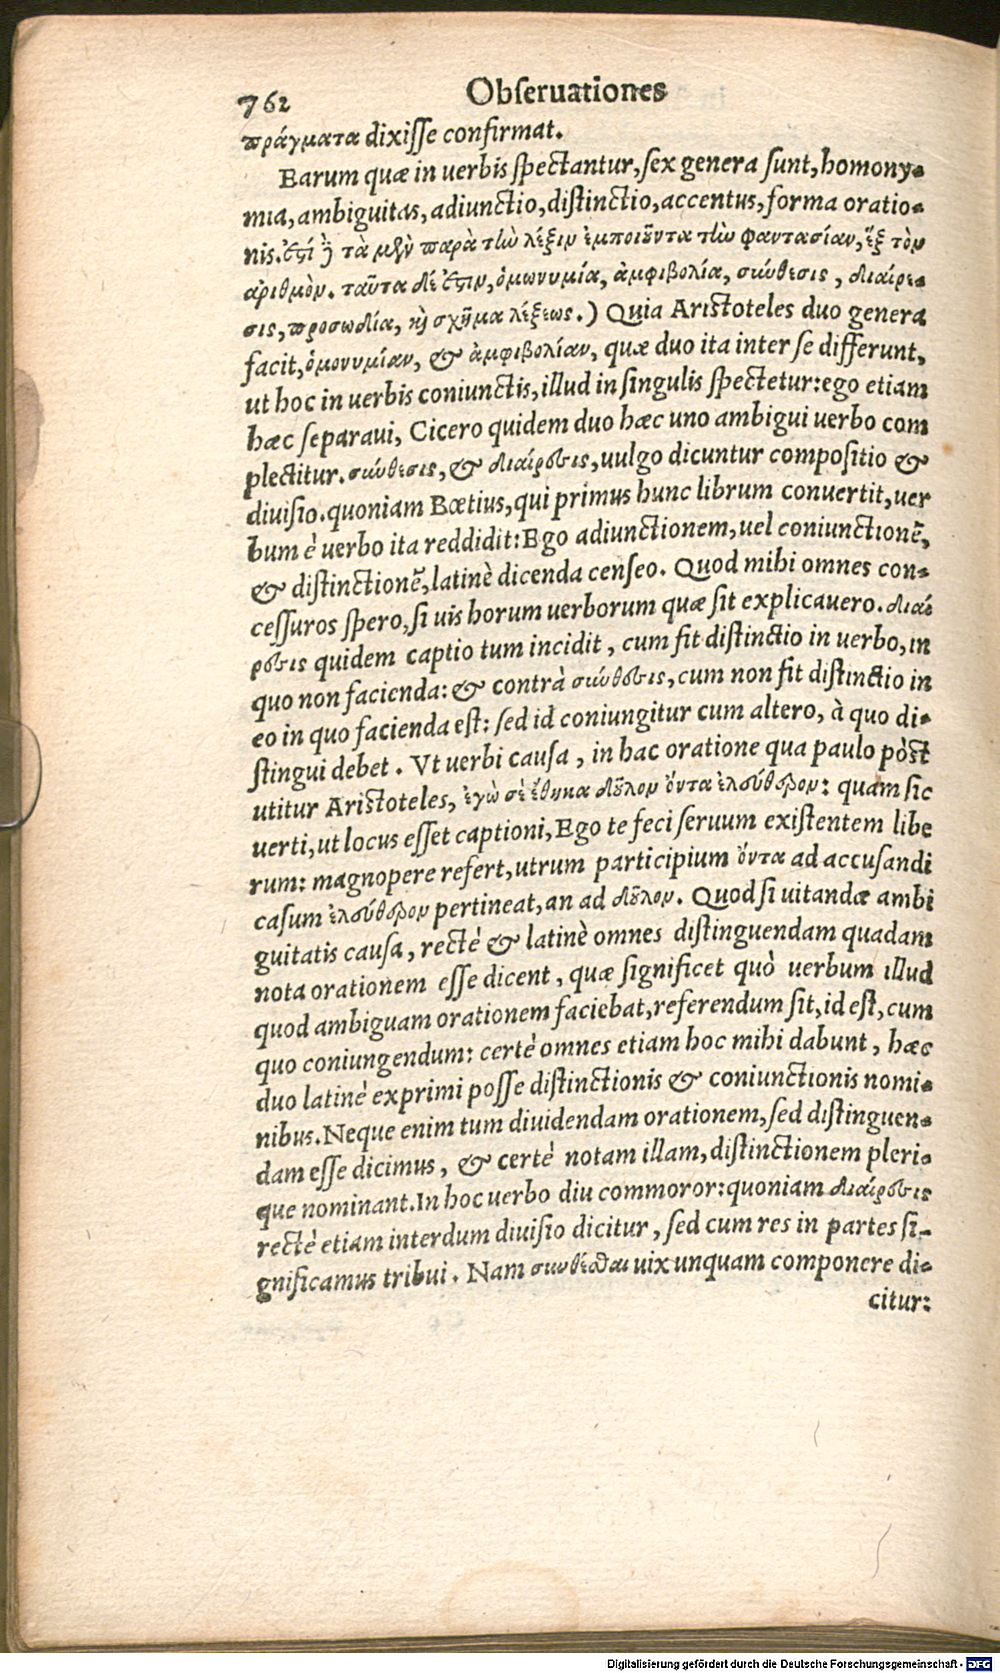 762 Obseruationes
πράγματα dixisse confirmat.
Earum quæ in uerbis spectantur, sex genera sunt, homony-
mia, ambiguitas, adiunctio, distinctio, accentus, forma oratio-
nis. ἐστὶ δὲ τὰ μὲν παρὰ τὴν λέξιν ἐμποιοῦντα τὴν φαντασίαν, ἓξ τὸν
ἀριθμὸν. ταῦτα δέ ἐστιν, ὁμωνυμία, ἀμφιβολία, σύνθεσις, διαίρε-
σις, προσωδία, καὶ σχῆμα λέξεως.) Quia Aristoteles duo genera
facit, ὁμονυμίαν, & ἀμφιβολίαν, quæ duo ita inter se differunt,
ut hoc in uerbis coniunctis, illud in singulis spectetur: ego etiam
hæc separaui, Cicero quidem duo hæc uno ambigui uerbo com
plectitur. σύνθεσις, & διαίρεσις, uulgo dicuntur compositio &
diuisio. quoniam Boetius, qui primus hunc librum conuertit, uer
bum è uerbo ita reddidit: Ego adiunctionem, uel coniunctionẽ,
& distinctionẽ, latinè dicenda censeo. Quod mihi omnes con-
cessuros spero, si uis horum uerborum quæ sit explicauero. διαί
ρεσις quidem captio tum incidit, cum fit distinctio in uerbo, in
quo non facienda: & contrà σύνθεσις, cum non fit distinctio in
eo in quo facienda est: sed id coniungitur cum altero, à quo di-
stingui debet. Vt uerbi causa, in hac oratione qua paulo pòst
utitur Aristoteles, ἐγὼ σὲ ἔθηκα δοῦλον ὄντα ἐλεύθερον: quam sic
uerti, ut locus esset captioni, Ego te feci seruum existentem libe
rum: magnopere refert, utrum participium ὄντα ad accusandi
casum ἐλεύθερον pertineat, an ad δοῦλον. Quod si uitandæ ambi
guitatis causa, rectè & latinè omnes distinguendam quadam
nota orationem esse dicent, quæ significet quò uerbum illud
quod ambiguam orationem faciebat, referendum sit, id est, cum
quo coniungendum: certè omnes etiam hoc mihi dabunt, hæc
duo latinè exprimi posse distinctionis & coniunctionis nomi-
nibus. Neque enim tum diuidendam orationem, sed distinguen-
dam esse dicimus, & certè notam illam, distinctionem pleri-
que nominant. In hoc uerbo diu commoror: quoniam διαίρεσις
rectè etiam interdum diuisio dicitur, sed cum res in partes si-
gnificamus tribui. Nam συνθέσθαι uix unquam componere di-
citur:
Digitalisierung gefördert durch die Deutsche Forschungsgemeinschaft - DFG